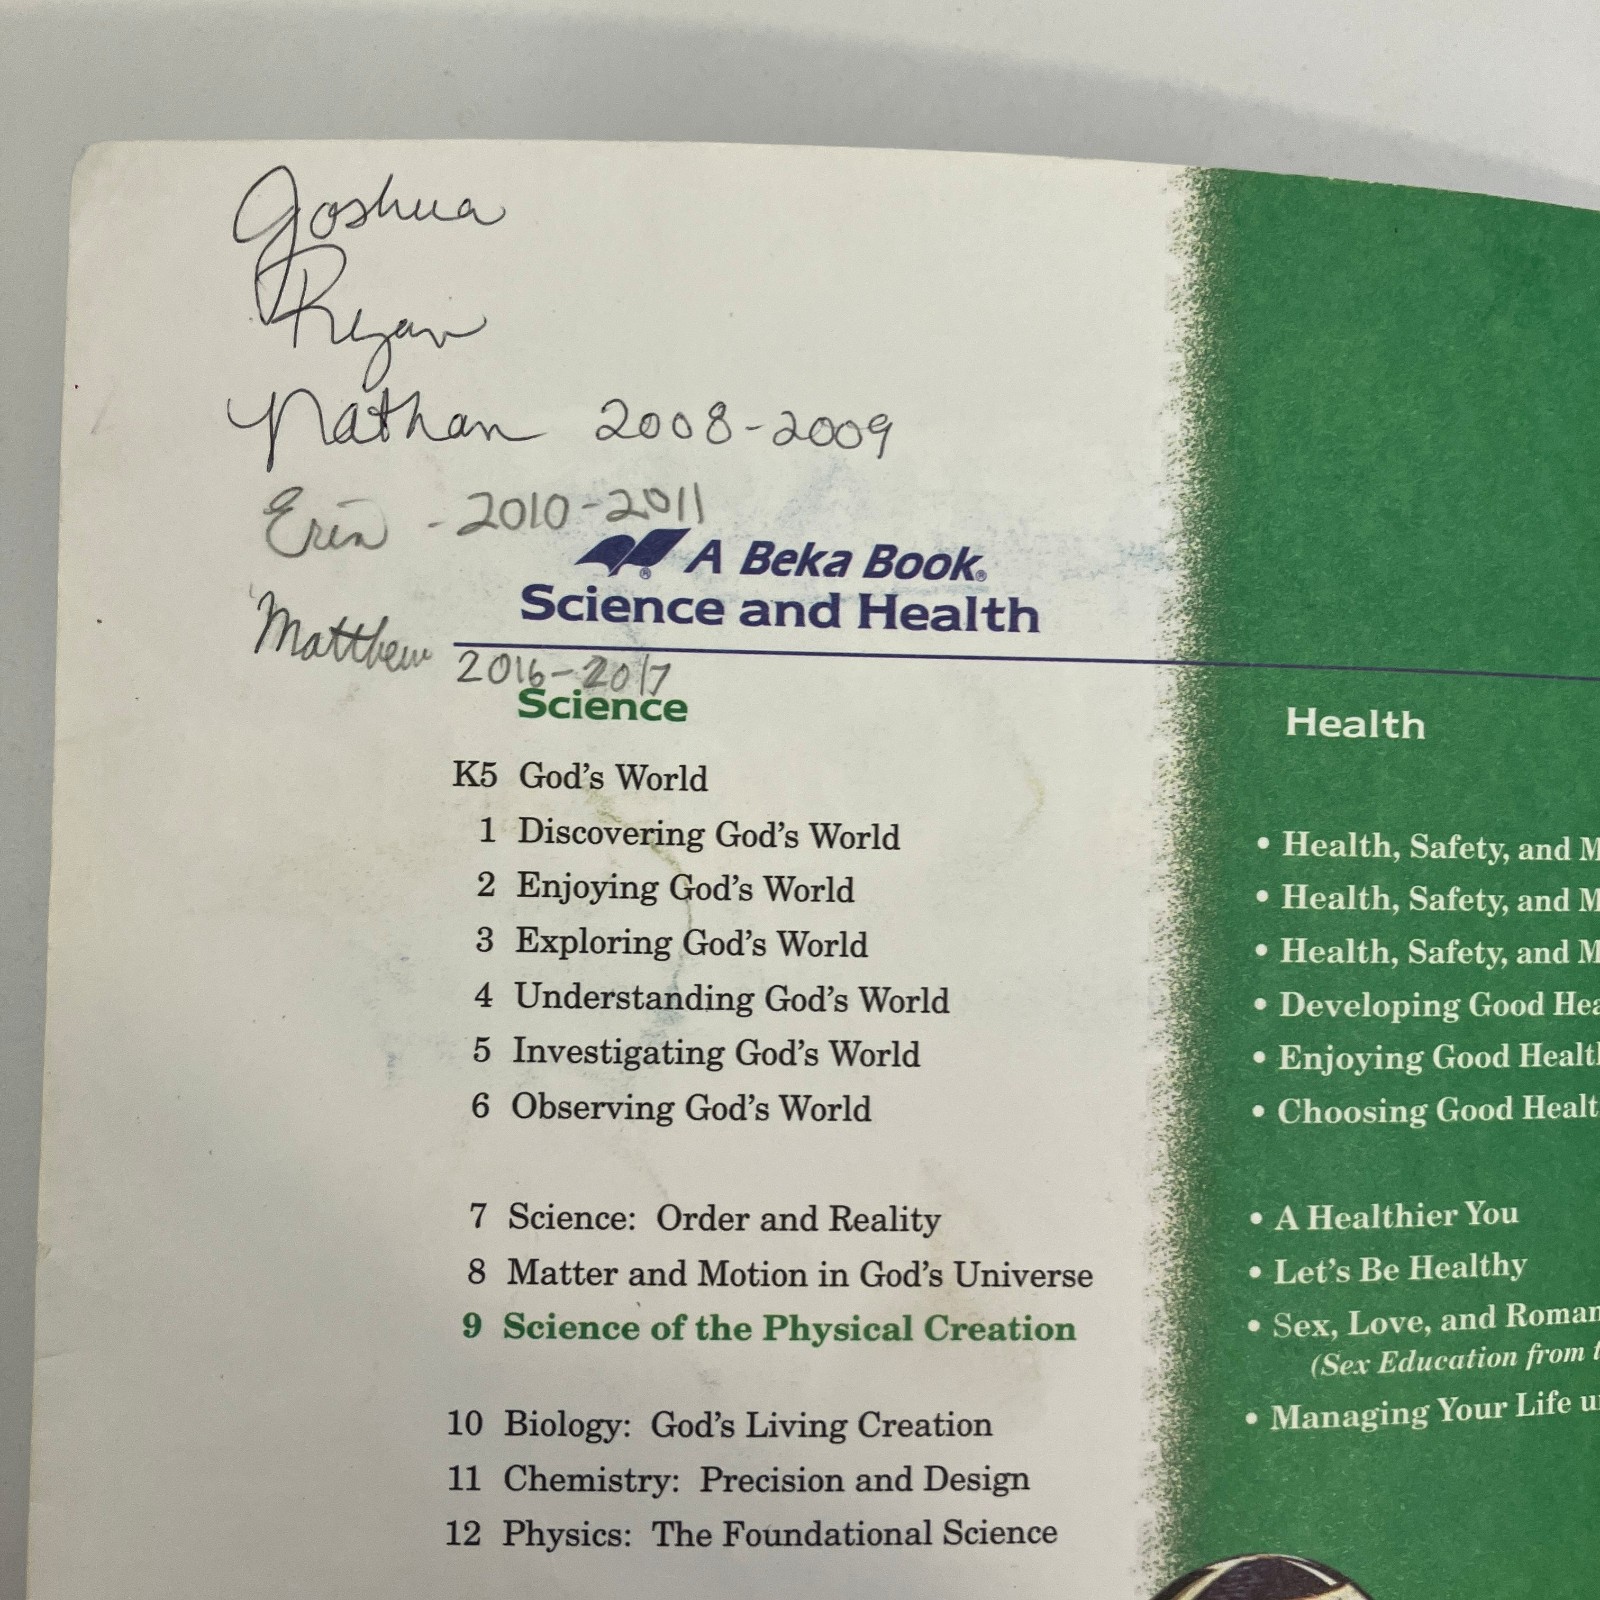 Joshua
Ryan
Nathan 2008-2009
Erin - 2010-2011
A Beka Book®
Science and Health
Matthew 2016-2017
Science
K5 God's World
1 Discovering God's World
2 Enjoying God's World
3 Exploring God's World
4 Understanding God's World
5 Investigating God's World
6 Observing God's World
7 Science: Order and Reality
8 Matter and Motion in God's Universe
9 Science of the Physical Creation
10 Biology: God's Living Creation
11 Chemistry: Precision and Design
12 Physics: The Foundational Science
Health
• Health, Safety, and M
• Health, Safety, and M
• Health, Safety, and M
• Developing Good Hea
• Enjoying Good Healt
• Choosing Good Healt
• A Healthier You
• Let's Be Healthy
• Sex, Love, and Roman
(Sex Education from t
• Managing Your Life u